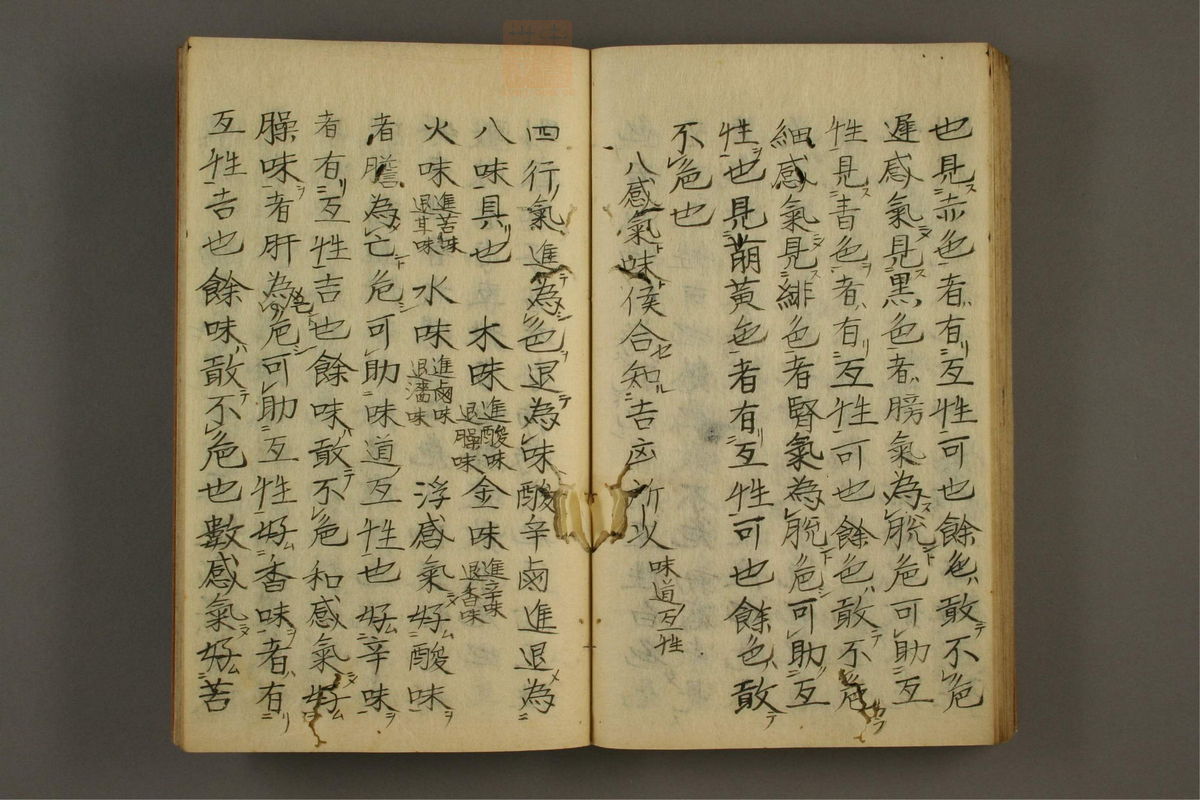 也見赤色者有互性可也餘色敢不危
遲感氣見黒色者膀氣為脱危可助互
性見青色者有互性可也餘色敢不危
細感氣見緋色者腎氣為脱危可助互
性也見萠黄色者有互性可也餘色敢
不危也
八感氣味侯合知吉凶所以 味道互性
四行氣進為色退為味酸辛鹵進退為
八味具也 木味 進酸味 退臊味 金味 進辛味 退香味
火味 進苦味 退甘味 水味 進鹵味 退味 浮感氣好酸味
者膽為亡危可助味道互性也好辛味
者有互性吉也餘味敢不危和感氣好
臊味者肝為危可助互性好香味者有
互性吉也餘味敢不危也數感氣好苦